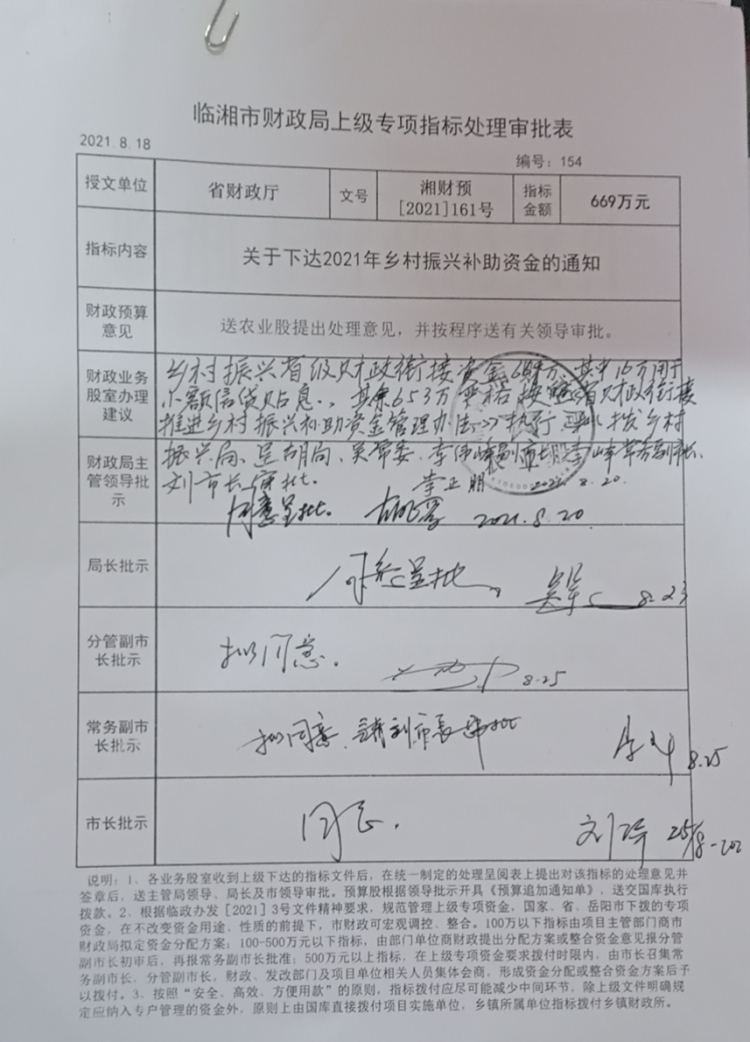 临湘市财政局上级专项指标处理审批表
2021.8.18
编号：154
授文单位 省财政厅 文号 湘财预[2021]161号 指标金额 669万元
指标内容 关于下达2021年乡村振兴补助资金的通知
财政预算意见 送农业股提出处理意见，并按程序送有关领导审批。
财政业务股室办理建议
乡村振兴省级财政衔接资金669万、其中16万用于
小额信贷贴息、其余653万 按 省财政衔接
推进乡村振兴补助资金管理办法》执行 拨乡村
财政局主管领导批示
振兴局、呈胡局、吴常委、李
刘市长审批。 李正明 2021.8.20
同意呈批。 2021.8.20
局长批示 同意呈批 8.23
分管副市长批示 拟同意。 8.25
常务副市长批示 拟同意，请刘市长审批 8.25
市长批示 同意。 刘琦 25/8
说明：1、各业务股室收到上级下达的指标文件后，在统一制定的处理呈阅表上提出对该指标的处理意见并
签章后，送主管局领导、局长及市领导审批。预算股根据领导批示开具《预算追加通知单》，送交国库执行
拨款。2、根据临政办发[2021]3号文件精神要求，规范管理上级专项资金，国家、省、岳阳市下拨的专项
资金，在不改变资金用途、性质的前提下，市财政可宏观调控、整合。100万以下指标由项目主管部门商市
财政局拟定资金分配方案；100-500万元以下指标，由部门单位商财政提出分配方案或整合资金意见报分管
副市长初审后，再报常务副市长批准；500万元以上指标，在上级专项资金要求拨付时限内，由市长召集常
务副市长，分管副市长，财政、发改部门及项目单位相关人员集体会商，形成资金分配或整合资金方案后予
以拨付。3、按照“安全、高效、方便用款”的原则，指标拨付应尽可能减少中间环节，除上级文件明确规
定应纳入专户管理的资金外，原则上由国库直接拨付项目实施单位，乡镇所属单位指标拨付乡镇财政所。